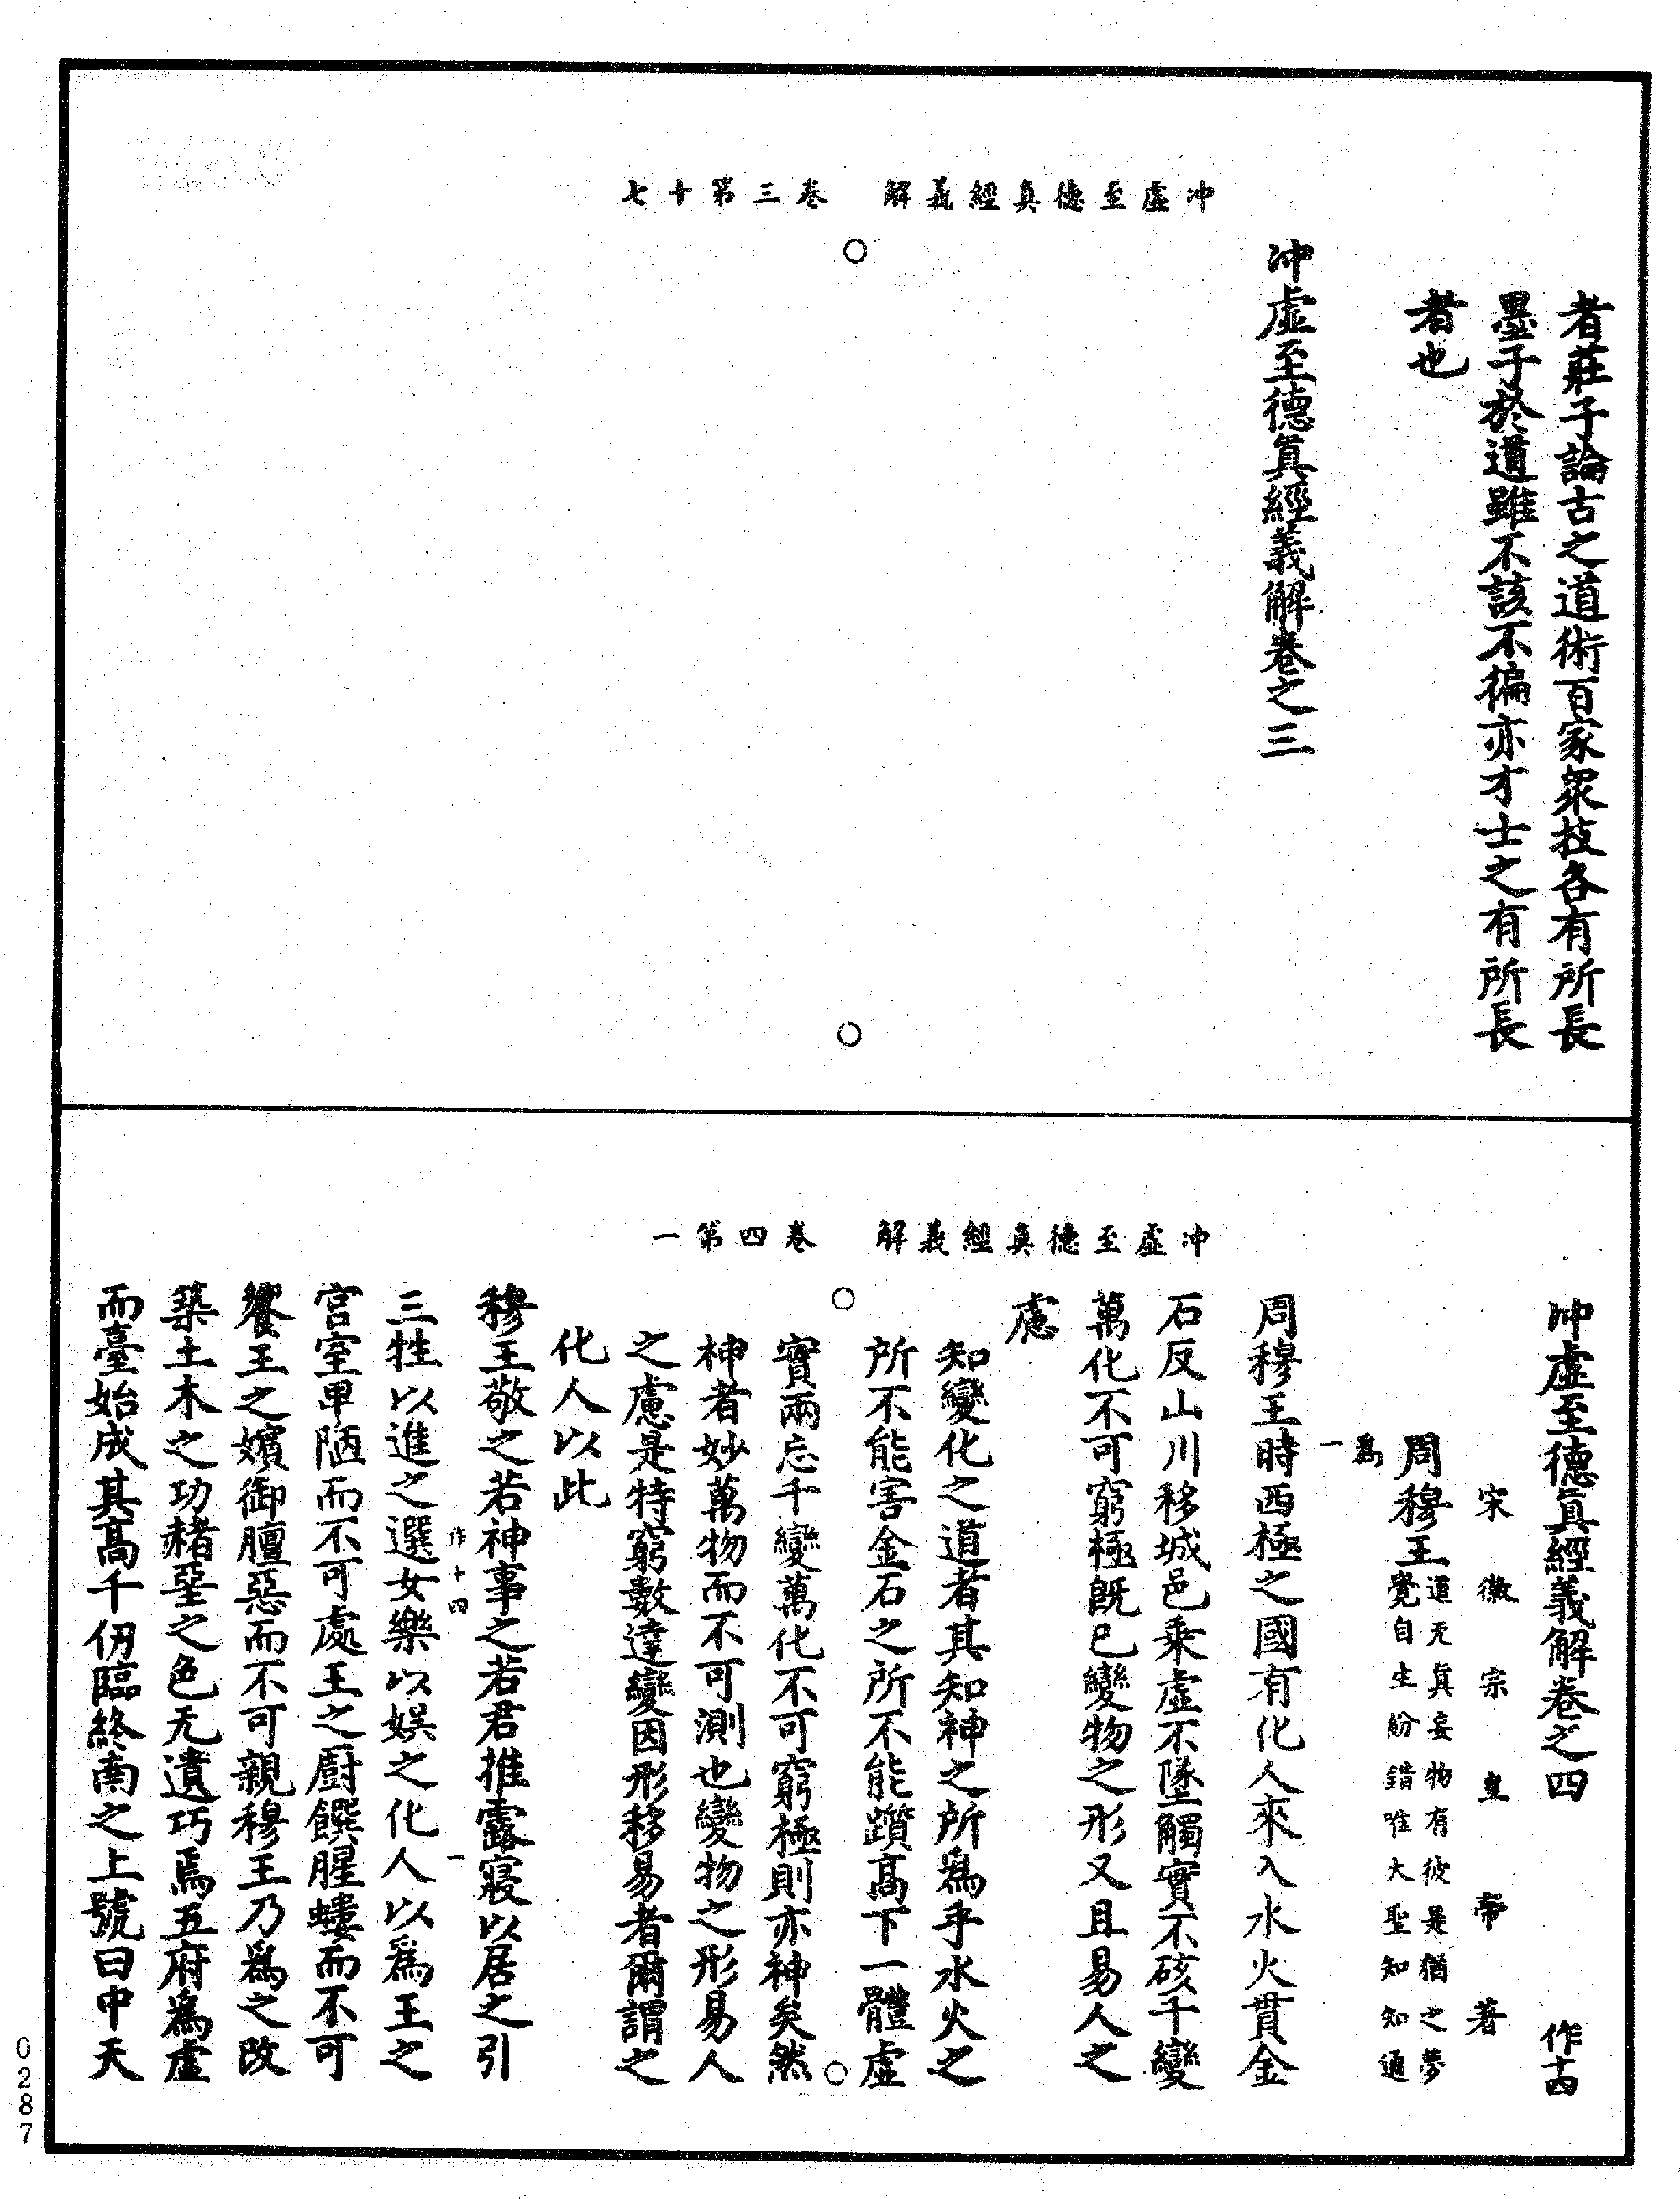 冲虛至德真經義解　卷三第十七
者莊子論古之道術百家衆技各有所長
墨子於道雖不該不徧亦才士之有所長
者也
冲虛至德真經義解卷之三
冲虛至德真經義解　卷四第一
冲虛至德真經義解卷之四　作十四
宋徽宗皇帝著
周穆王道无真妄物有彼是猶之夢
覺自生紛錯唯大聖知知通
爲一
周穆王時西極之國有化人來入水火貫金
石反山川移城邑乘虛不墜觸實不硋千變
萬化不可窮極既已變物之形又且易人之
慮
知變化之道者其知神之所爲乎水火之
所不能害金石之所不能躓高下一體虛
實兩忘千變萬化不可窮極則亦神矣然
神者妙萬物而不可測也變物之形易人
之慮是特窮數達變因形移易者爾謂之
化人以此
穆王敬之若神事之若君推露寢以居之引
作十四　一
三牲以進之選女樂以娛之化人以爲王之
宮室卑陋而不可處王之廚饌腥螻而不可
饗王之嬪御膻惡而不可親穆王乃爲之改
築土木之功赭堊之色无遺巧焉五府爲虛
而臺始成其高千仞臨終南之上號曰中天
0287